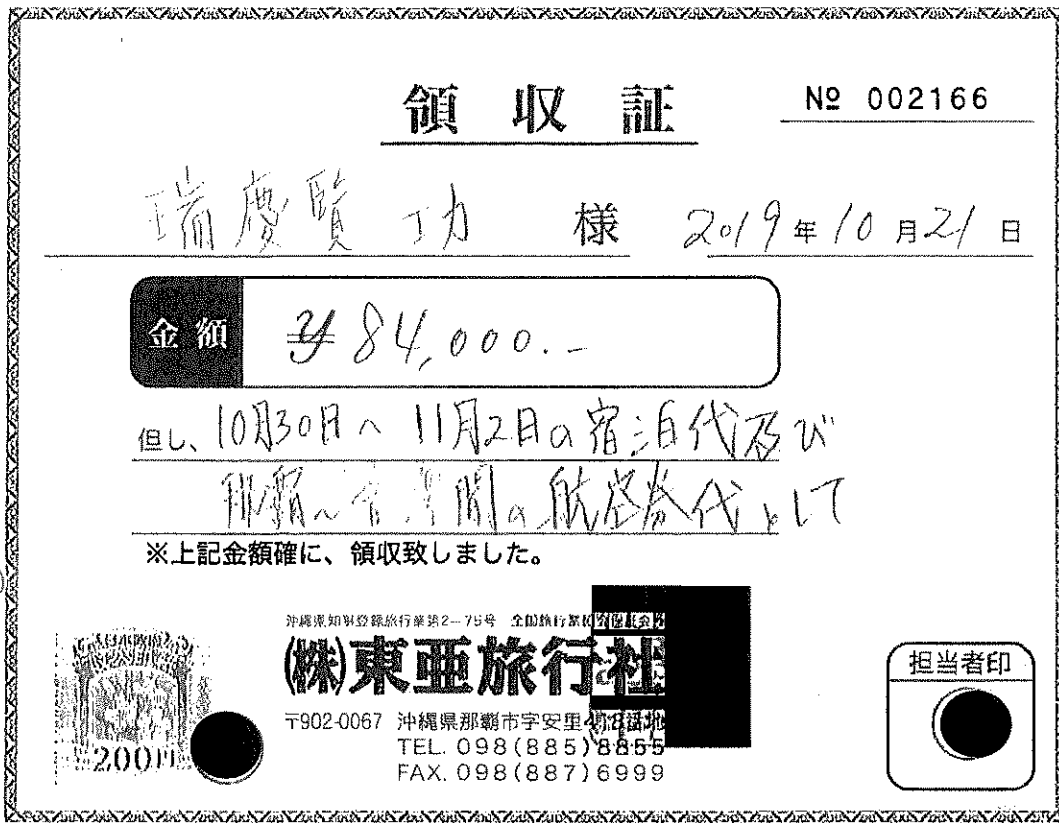 領収証
№ 002166
瑞慶覧 功 様 2019年10月21日
金額 ¥84,000.-
但し、10月30日〜11月2日の宿泊代及び
那覇〜 間の航空券代として
※上記金額確に、領収致しました。
沖縄県知事登録旅行業第2-75号 全国旅行業協会
㈱東亜旅行社
〒902-0067 沖縄県那覇市字安里
TEL. 098(885)8855
FAX. 098(887)6999
200円
担当者印